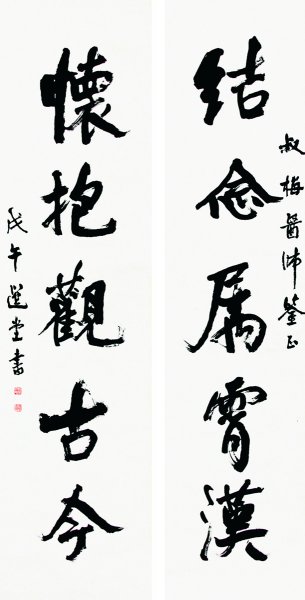 叔梅醫師鑒正
結念属霄漢
懷抱觀古今
戊午選堂書